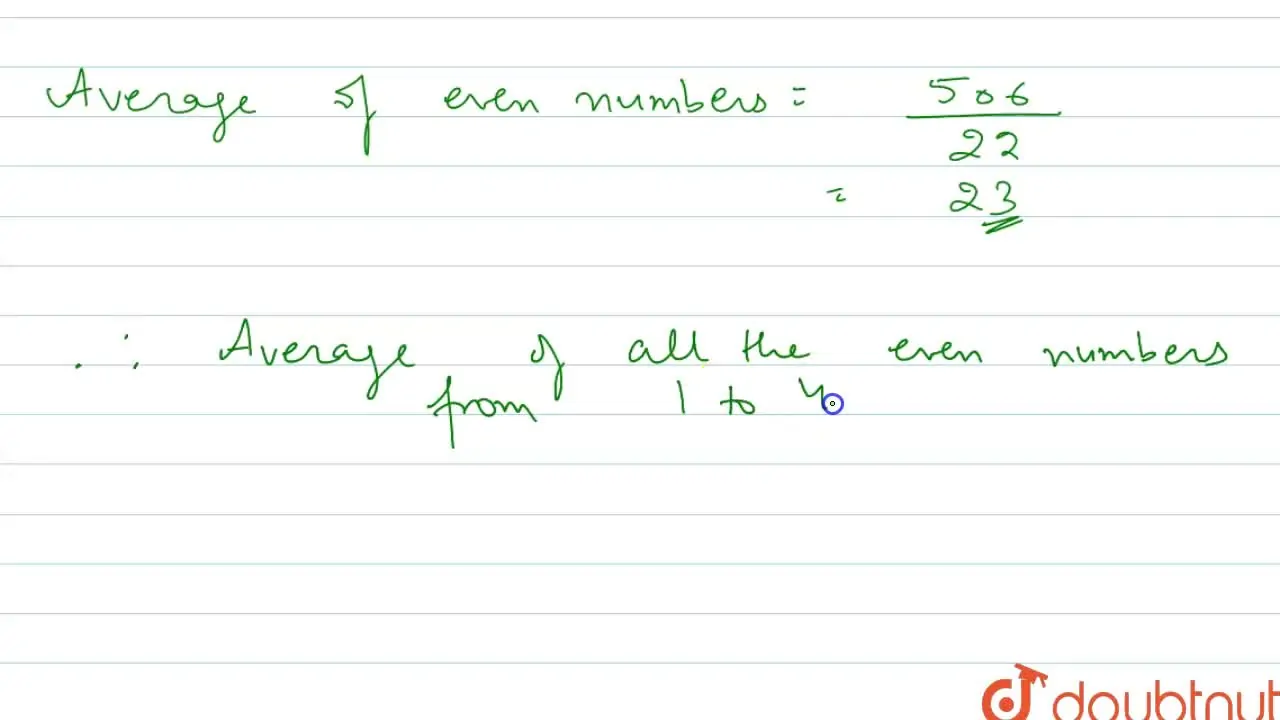 Average of even numbers = 506
22
= 23
∴ Average of all the even numbers
from 1 to 4
doubtnut